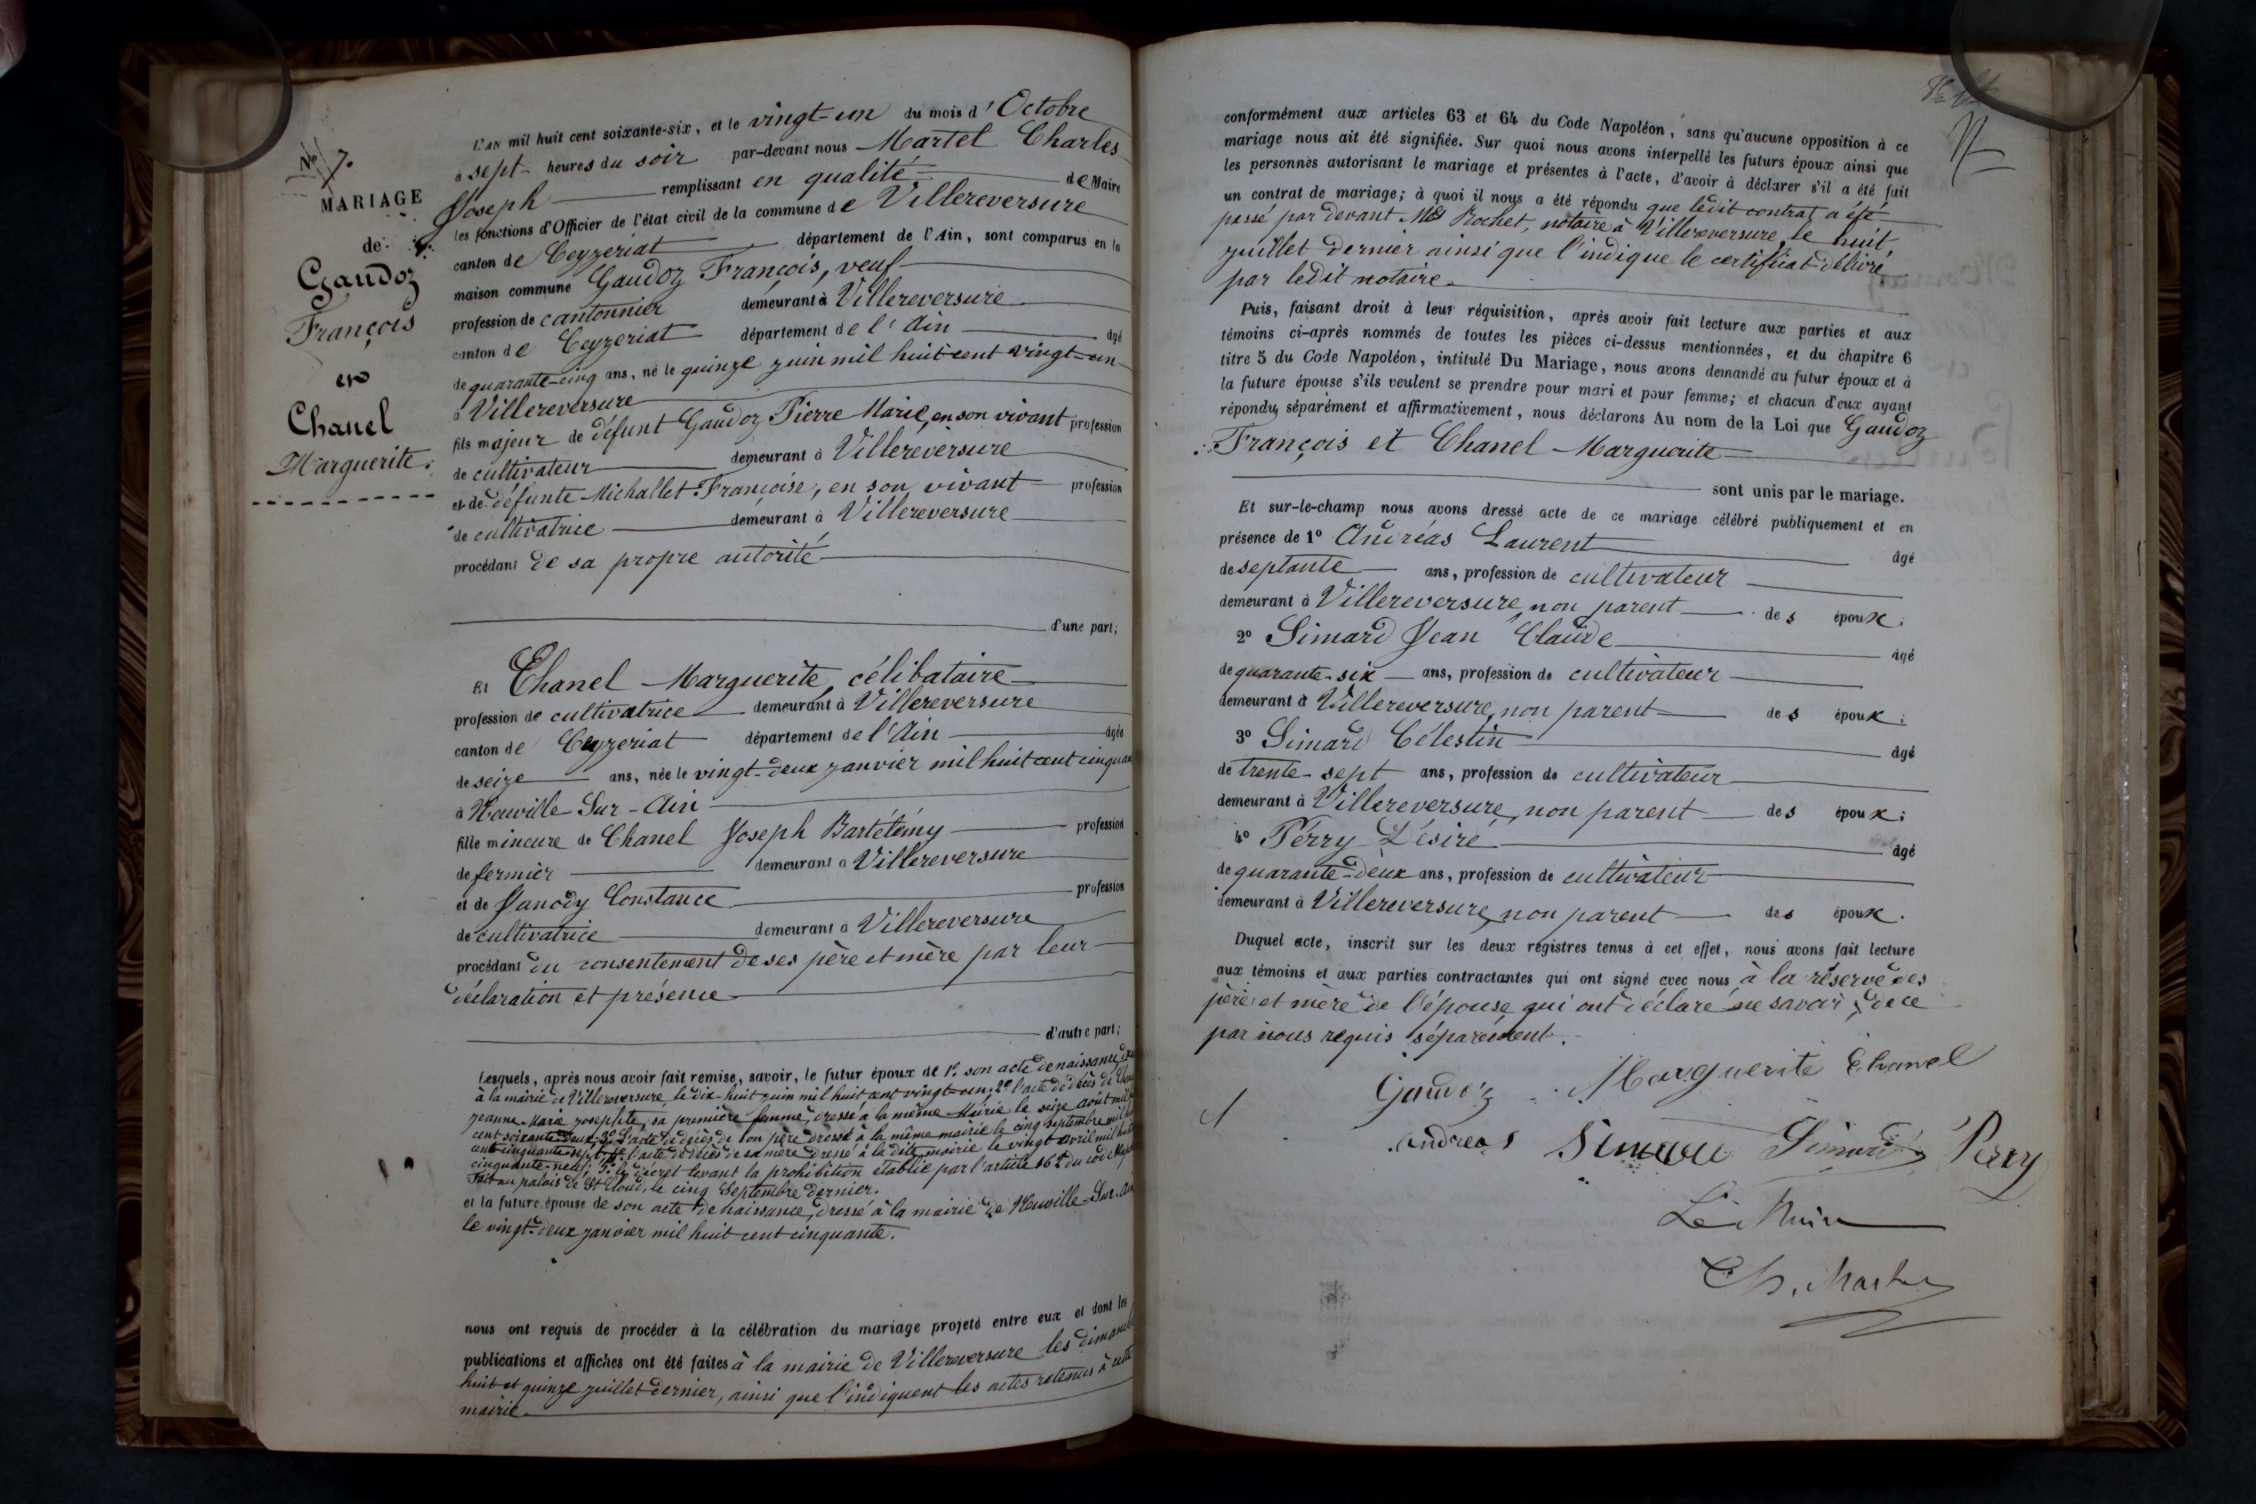 No 7.
MARIAGE
de
Gaudoz
François
et
Chanel
Marguerite.
L'AN mil huit cent soixante-six, et le vingt-un du mois d'Octobre
à sept heures du soir par-devant nous Martel Charles
Joseph remplissant en qualité de Maire
les fonctions d'Officier de l'état civil de la commune de Villereversure
canton de Ceyzeriat département de l'Ain, sont comparus en la
maison commune Gaudoz François, veuf
profession de cantonnier demeurant à Villereversure
canton de Ceyzeriat département de l'Ain âgé
de quarante-cinq ans, né le quinze juin mil huit cent vingt-un
à Villereversure
fils majeur de défunt Gaudoz Pierre Marie, en son vivant profession
de cultivateur demeurant à Villereversure
et de défunte Michallet Françoise, en son vivant profession
de cultivatrice demeurant à Villereversure
procédant de sa propre autorité
d'une part;
Et Chanel Marguerite, célibataire
profession de cultivatrice demeurant à Villereversure
canton de Ceyzeriat département de l'Ain âgée
de seize ans, née le vingt-deux janvier mil huit cent cinquan
à Neuville-Sur-Ain
fille mineure de Chanel Joseph Bartélémy profession
de fermier demeurant à Villereversure
et de Janody Constance profession
de cultivatrice demeurant à Villereversure
procédant du consentement de ses père et mère par leur
déclaration et présence
d'autre part;
Lesquels, après nous avoir fait remise, savoir, le futur époux de 1º son acte de naissance
à la mairie de Villereversure, le dix-huit juin mil huit cent vingt-un, 2º l'acte de décès de
Jeanne-Marie Josephte, sa première femme, dressé à la même Mairie le seize août mil
cent soixante-deux; 3º L'acte de décès de son père dressé à la même mairie le cinq septembre mil
cent cinquante-sept, 4º l'acte de décès de sa mère dressé à la dite mairie le vingt avril mil
cinquante-neuf; 5º le décret levant la prohibition établie par l'article 162 du code
Fait au palais de St Cloud, le cinq Septembre dernier.
et la future épouse de son acte de naissance, dressé à la mairie de Neuville-Sur-Ain
le vingt-deux janvier mil huit cent cinquante.
nous ont requis de procéder à la célébration du mariage projeté entre eux et dont les
publications et affiches ont été faites à la mairie de Villereversure les dimanch
huit et quinze juillet dernier, ainsi que l'indiquent les actes retenus à cette
mairie
conformément aux articles 63 et 64 du Code Napoléon, sans qu'aucune opposition à ce
mariage nous ait été signifiée. Sur quoi nous avons interpellé les futurs époux ainsi que
les personnes autorisant le mariage et présentes à l'acte, d'avoir à déclarer s'il a été fait
un contrat de mariage; à quoi il nous a été répondu que ledit contrat a été
passé par devant Me Rochet, notaire à Villereversure, le huit
juillet dernier ainsi que l'indique le certificat délivré
par ledit notaire.
Puis, faisant droit à leur réquisition, après avoir fait lecture aux parties et aux
témoins ci-après nommés de toutes les pièces ci-dessus mentionnées, et du chapitre 6
titre 5 du Code Napoléon, intitulé Du Mariage, nous avons demandé au futur époux et à
la future épouse s'ils veulent se prendre pour mari et pour femme; et chacun d'eux ayant
répondu séparément et affirmativement, nous déclarons Au nom de la Loi que Gaudoz
François et Chanel Marguerite
sont unis par le mariage.
Et sur-le-champ nous avons dressé acte de ce mariage célébré publiquement et en
présence de 1º Andréas Laurent âgé
de septante ans, profession de cultivateur
demeurant à Villereversure, non parent des époux;
2º Simard Jean Claude âgé
de quarante-six ans, profession de cultivateur
demeurant à Villereversure, non parent des époux;
3º Simard Célestin âgé
de trente-sept ans, profession de cultivateur
demeurant à Villereversure, non parent des époux;
4º Perry Désiré âgé
de quarante-deux ans, profession de cultivateur
demeurant à Villereversure, non parent des époux.
Duquel acte, inscrit sur les deux registres tenus à cet effet, nous avons fait lecture
aux témoins et aux parties contractantes qui ont signé avec nous à la réserve des
père et mère de l'épouse qui ont déclaré ne savoir, de ce
par nous requis séparément.
Gaudoz Marguerite Chanel
andreas Simard Simard Perry
Le Maire
Ch. Martel